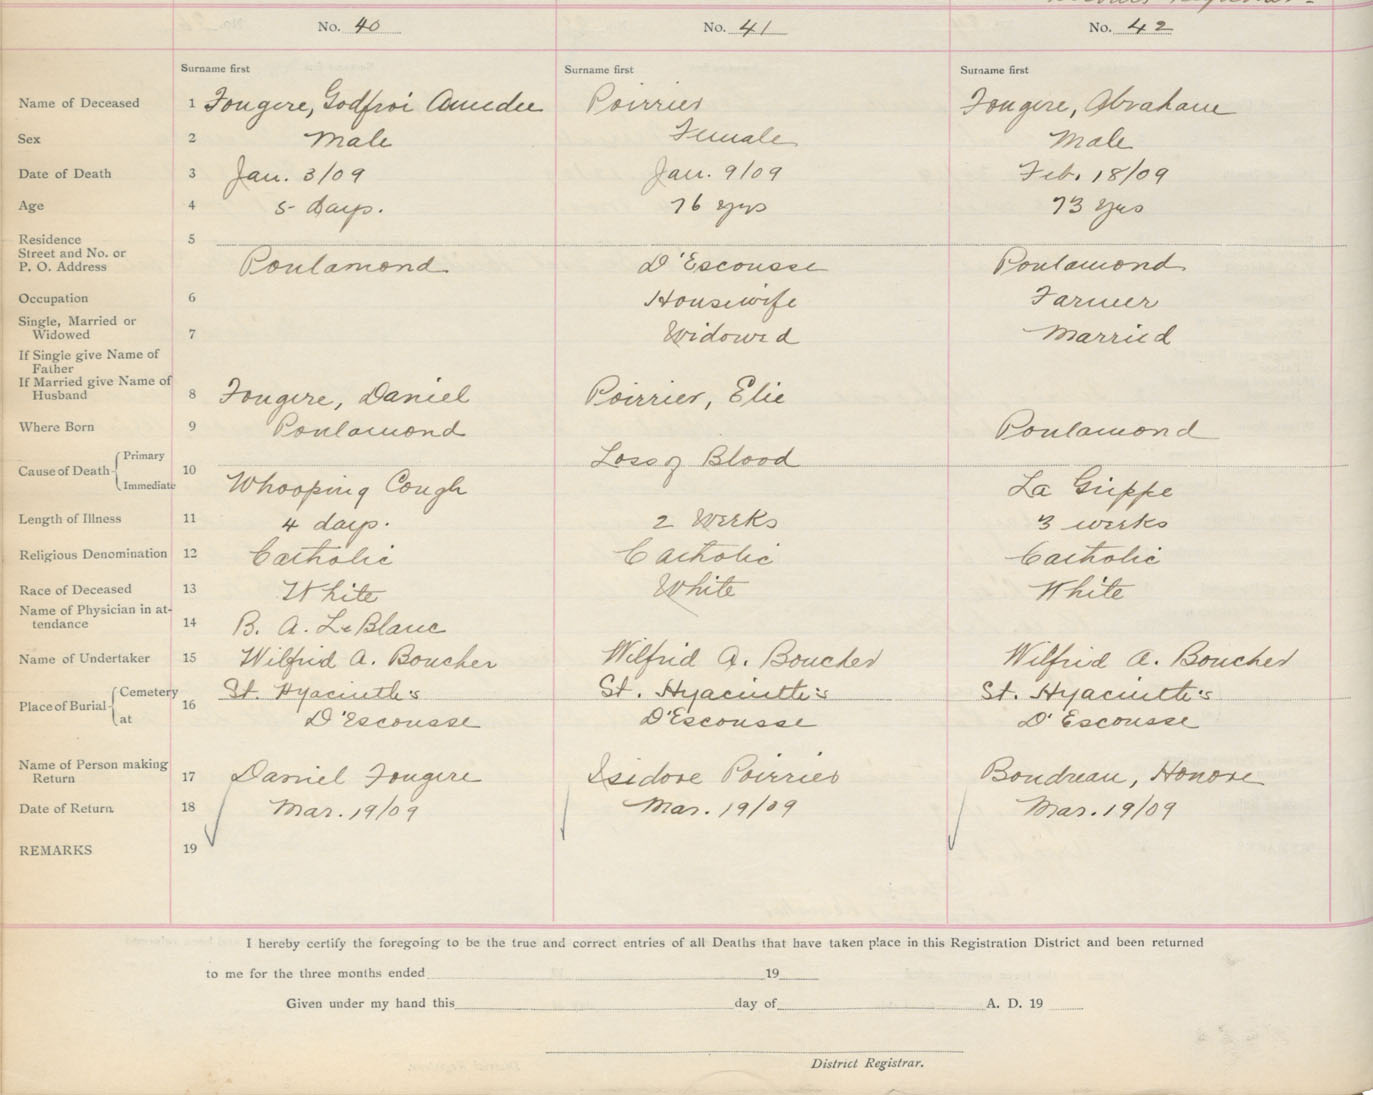 No. 40 No. 41 No. 42
Surname first Surname first Surname first
Name of Deceased 1 Fougere, Godfroi Amedee Poirrier Fougere, Abraham
Sex 2 Male Female Male
Date of Death 3 Jan. 3/09 Jan. 9/09 Feb. 18/09
Age 4 5 days. 76 yrs 73 yrs
Residence 5
Street and No. or
P. O. Address Poulamond D'Escousse Poulamond
Occupation 6 Housewife Farmer
Single, Married or
Widowed 7 Widowed Married
If Single give Name of
Father
If Married give Name of
Husband 8 Fougere, Daniel Poirrier, Elie
Where Born 9 Poulamond Poulamond
Cause of Death Primary Loss of Blood
10
Immediate Whooping Cough La Grippe
Length of Illness 11 4 days. 2 weeks 3 weeks
Religious Denomination 12 Catholic Catholic Catholic
Race of Deceased 13 White White White
Name of Physician in at-
tendance 14 B. A. LeBlanc
Name of Undertaker 15 Wilfrid A. Boucher Wilfrid A. Boucher Wilfrid A. Boucher
Place of Burial Cemetery 16 St. Hyacinthe's St. Hyacinthe's St. Hyacinthe's
at D'Escousse D'Escousse D'Escousse
Name of Person making
Return 17 Daniel Fougere Isidore Poirrier Boudreau, Honore
Date of Return 18 Mar. 19/09 Mar. 19/09 Mar. 19/09
REMARKS 19
I hereby certify the foregoing to be the true and correct entries of all Deaths that have taken place in this Registration District and been returned
to me for the three months ended 19
Given under my hand this day of A. D. 19
District Registrar.